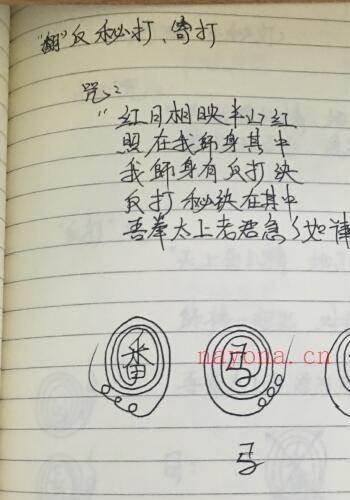 "翻"反秘打、寄打
咒:
"红日相映半山红
照在我师身其中
我师身有反打诀
反打秘诀在其中
吾奉太上老君急々如律
番
马
nayona.cn
马